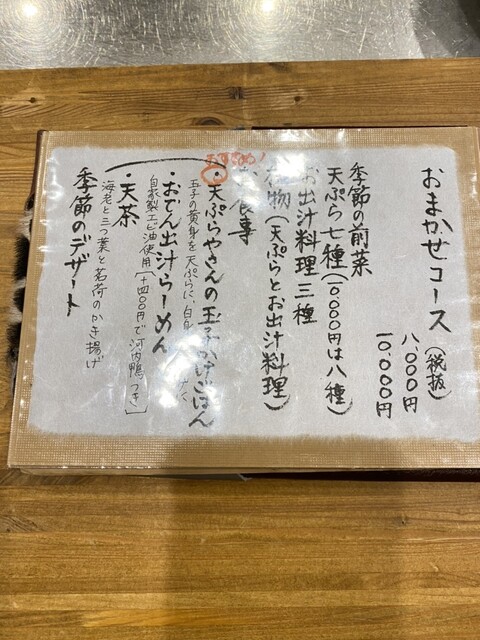 おまかせコース(税抜)
八,〇〇〇円
一〇,〇〇〇円
季節の前菜
天ぷら七種(一〇,〇〇〇円は八種)
お出汁料理三種
物(天ぷらとお出汁料理)
お食事
おすすめ!
・天ぷらやさんの玉子かけごはん
玉子の黄身を天ぷらに、白身
・おでん出汁らーめん
自家製エビ油使用[+四〇〇円で河内鴨つき]
・天茶
海老と三つ葉と茗荷のかき揚げ
季節のデザート